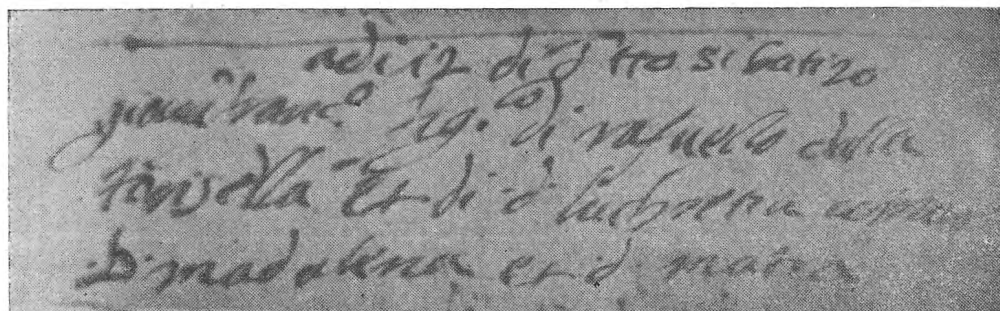 adi 12 di d.tto si batizo
giouan franc.o fig.lo di rafaello della
fonsella et di d. luchretia
D. madalena et d. matea